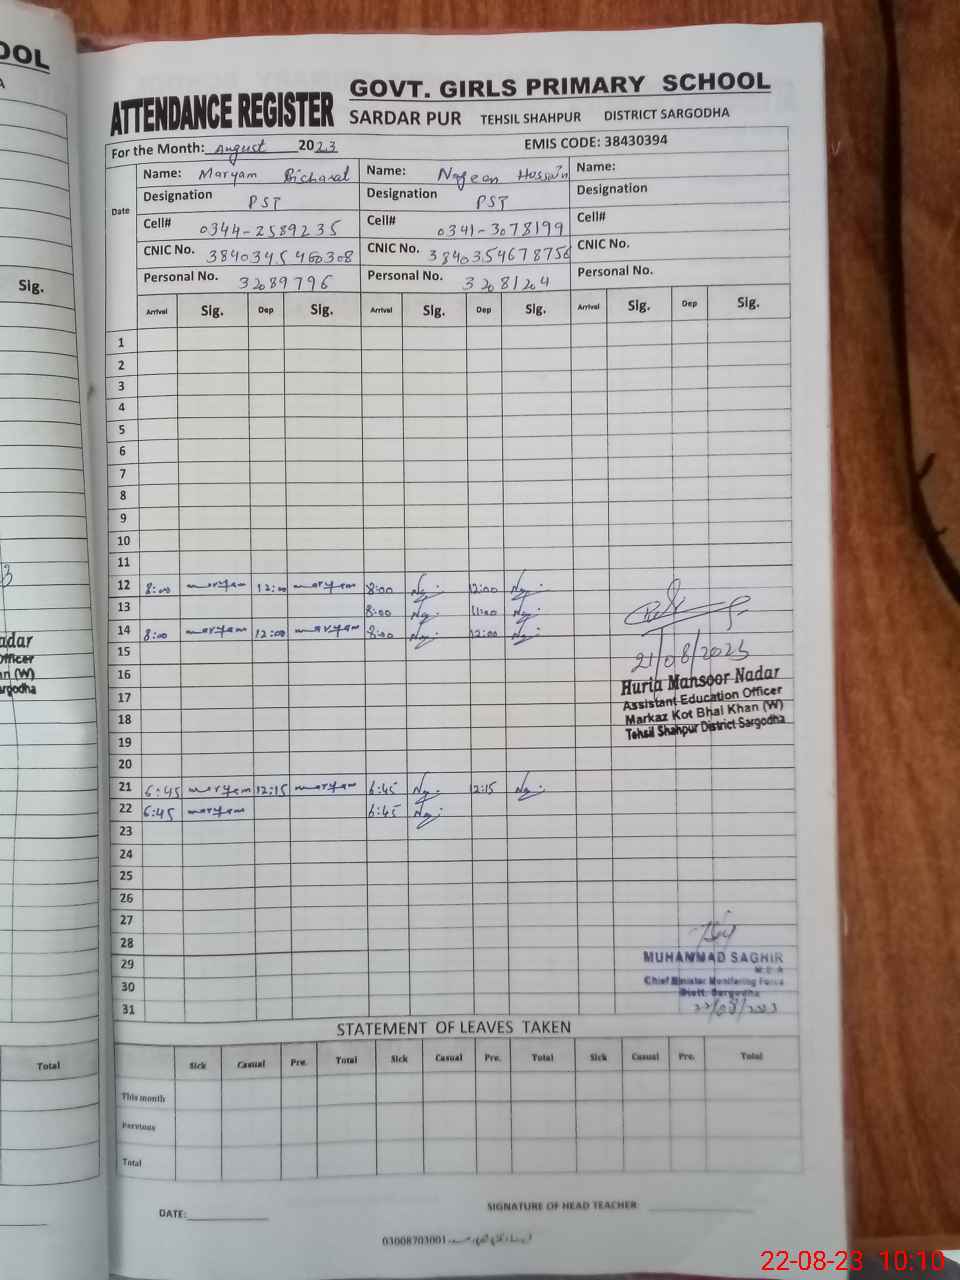 OOL
ATTENDANCE REGISTER
GOVT. GIRLS PRIMARY SCHOOL
SARDAR PUR TEHSIL SHAHPUR DISTRICT SARGODHA
For the Month: August 2023 EMIS CODE: 38430394
Date
Name: Maryam Name: Name:
Designation PST Designation PST Designation
Cell# 0344-2589235 Cell# 0341-3078199 Cell#
CNIC No. CNIC No. 3840354678756 CNIC No.
Personal No. 32089796 Personal No. 32081204 Personal No.
Sig.
Arrival Sig. Dep Sig. Arrival Sig. Dep Sig. Arrival Sig. Dep Sig.
1
2
3
4
5
6
7
8
9
10
11
12 8:00 maryam 12:00 maryam 8:00 12:00
13 8:00 11:00
14 8:00 maryam 12:00 maryam 8:00 12:00
15
16
17
18
19
20
21 6:45 maryam 12:15 maryam 6:45 12:15
22 6:45 maryam 6:45
23
24
25
26
27
28
29
30
31
21/08/2023
Huria Mansoor Nadar
Assistant Education Officer
Markaz Kot Bhai Khan (W)
Tehsil Shahpur District Sargodha
adar
officer
an (W)
argodha
MUHAMMAD SAGHIR
M.E.A
Chief Minister Monitoring Force
Distt. Sargodha
22/08/2023
STATEMENT OF LEAVES TAKEN
Total
Sick Casual Pre. Total Sick Casual Pre. Total Sick Casual Pre. Total
This month
Pervious
Total
DATE: SIGNATURE OF HEAD TEACHER
03008703001
22-08-23 10:10